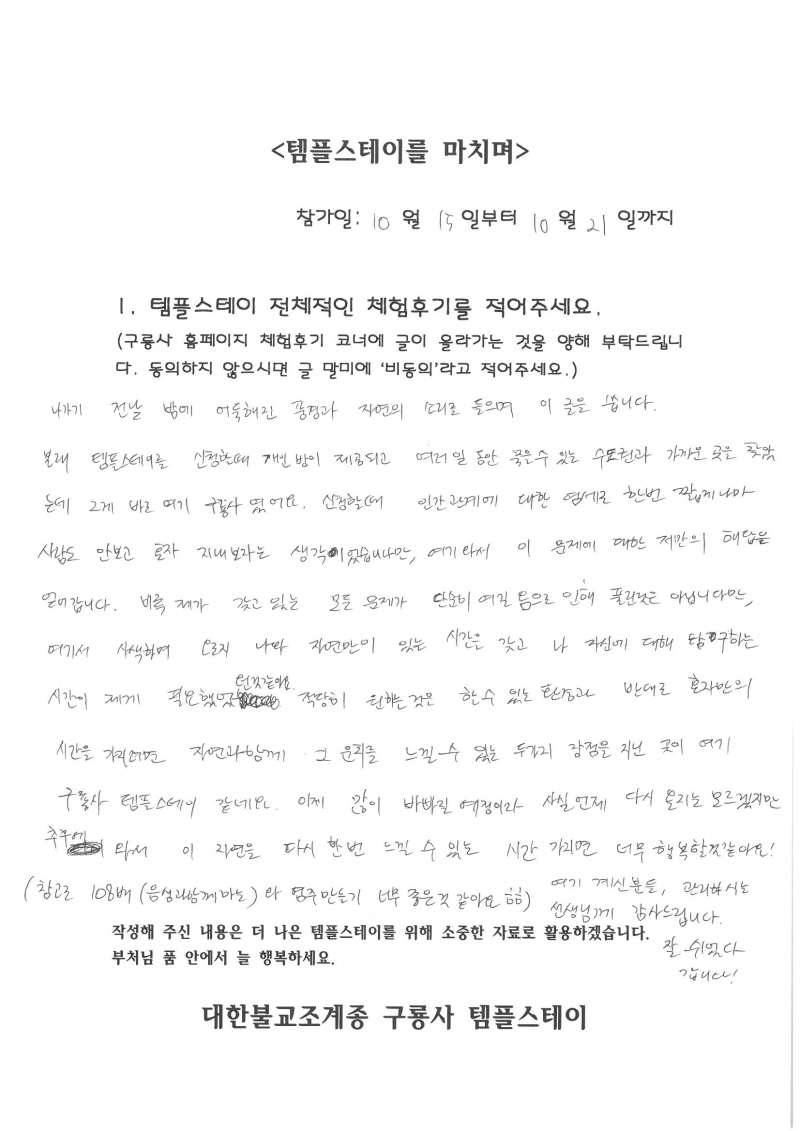 <템플스테이를 마치며>
참가일: 10 월 15 일부터 10 월 21 일까지
1. 템플스테이 전체적인 체험후기를 적어주세요.
(구룡사 홈페이지 체험후기 코너에 글이 올라가는 것을 양해 부탁드립니
다. 동의하지 않으시면 글 말미에 '비동의'라고 적어주세요.)
나가기 전날 밤에 어둑해진 풍경과 자연의 소리로 들으며 이 글을 씁니다.
본래 템플스테이를 신청할때 개인 방이 제공되고 여러 일 동안 묵을 수 있는 수도권과 가까운 곳은 찾았
는데 그게 바로 여기 구룡사 였어요. 신청할때 인간관계에 대한 염세로 한번 짧게나마
사람도 안보고 혼자 지내보자는 생각이었습니다만, 여기 와서 이 문제에 대한 저만의 해답을
얻어갑니다. 비록 제가 갖고 있는 모든 문제가 단순히 여길 옴으로 인해 풀린것은 아닙니다만,
여기서 사색하며 오로지 나와 자연만이 있는 시간을 갖고 나 자신에 대해 탐구하는
시간이 제게 필요했었던것같아요. 적당히 원하는 것은 할 수 있는 환경과 반대로 혼자만의
시간을 가지려면 자연과 함께 그 운치를 느낄 수 있는 두가지 장점을 지닌 곳이 여기
구룡사 템플스테이 같네요. 이제 많이 바빠질 예정이라 사실 언제 다시 올지는 모르겠지만
추후에 와서 이 자연을 다시 한번 느낄 수 있는 시간 가지면 너무 행복할것같아요!
(참고로 108배 (음성과 함께 하는) 와 염주만들기 너무 좋은것 같아요 ㅎㅎ)
여기 계신분들, 관리하시는
선생님께 감사드립니다.
잘 쉬었다
갑니다!
작성해 주신 내용은 더 나은 템플스테이를 위해 소중한 자료로 활용하겠습니다.
부처님 품 안에서 늘 행복하세요.
대한불교조계종 구룡사 템플스테이